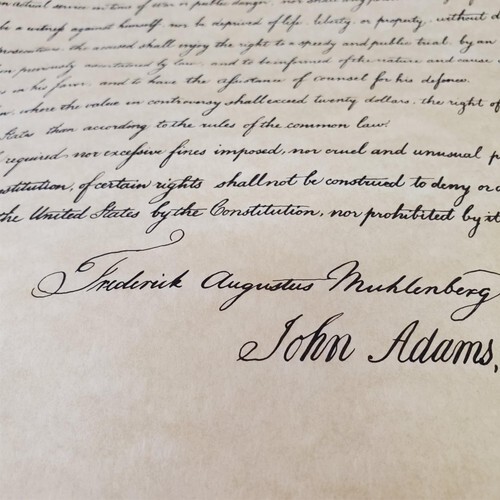 in actual service in time of War or public danger, nor shall any
be a witness against himself, nor be deprived of life, liberty, or property, without
prosecutions, the accused shall enjoy the right to a speedy and public trial, by an
previously ascertained by law, and to be informed of the nature and cause
in his favor, and to have the assistance of counsel for his defence.
where the value in controversy shall exceed twenty dollars, the right of
States than according to the rules of the common law.
required nor excessive fines imposed, nor cruel and unusual p
nstitution, of certain rights shall not be construed to deny or
the United States by the Constitution, nor prohibited by it
Frederick Augustus Muhlenberg
John Adams,